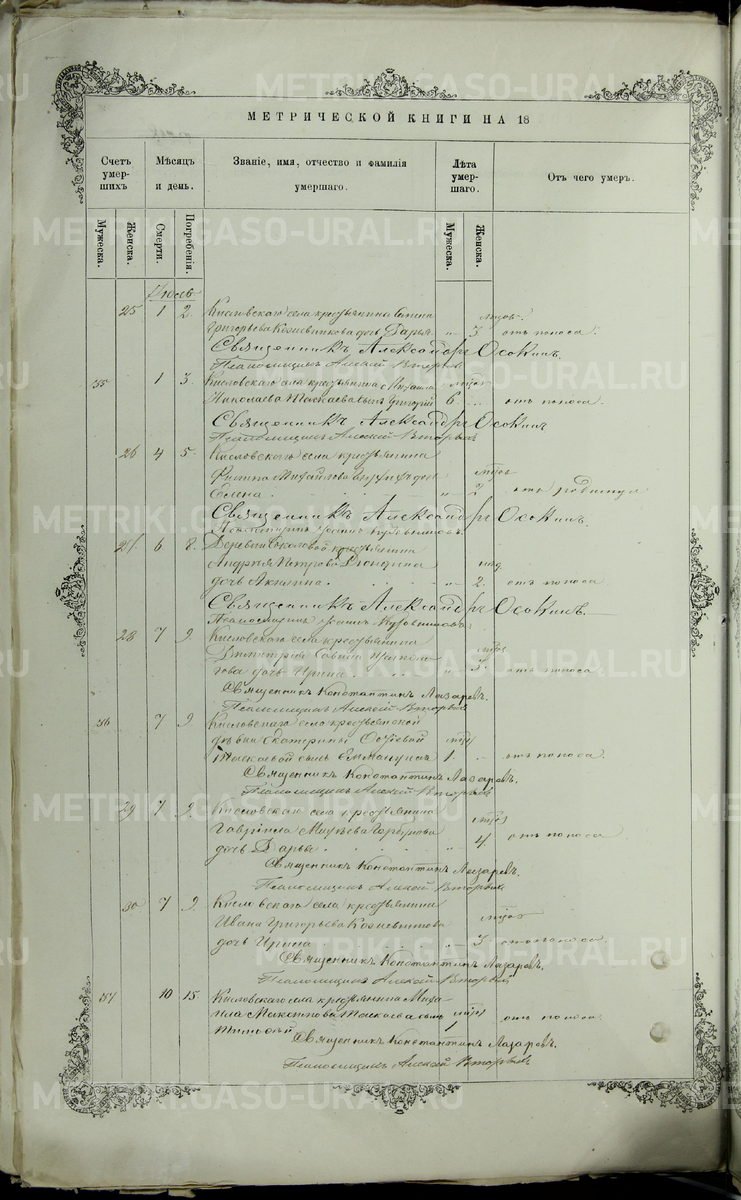 МЕТРИЧЕСКОЙ КНИГИ НА 18
Счетъ умер- шихъ
Мѣсяцъ и день.
Званіе, имя, отчество и фамилія умершаго.
Лѣта умер- шаго.
Отъ чего умеръ.
Мужеска. Женска. Смерти. Погребенія. Мужеска. Женска.
Іюль
25 1 2 Кисловскаго села крестьянина
Григорьева Кожевникова дочь Дарья 3 отъ поноса.
Священникъ Александръ Осокинъ.
Псаломщикъ Алексѣй Вторыхъ
35 1 3. Кисловскаго села крестьянина Михаила
Николаева Таскаева сынъ Григорій 6. отъ поноса.
Священникъ Александръ Осокинъ
Псаломщикъ Алексѣй Вторыхъ
26 4 5. Кисловскаго села крестьянина
Филиппа Михайлова дочь
Елена. 2 отъ родимца
Священникъ Александръ Осокинъ.
Псаломщикъ
27. 6 8. Деревни Соколовой крестьянина
Андрея Петрова
дочь Акилина. 2. отъ поноса
Священникъ Александръ Осокинъ.
Псаломщикъ
28 7 9. Кисловскаго села крестьянина
Димитрія Саввина
дочь Ирина 3. отъ поноса.
Священникъ Константинъ Лазаревъ.
Псаломщикъ Алексѣй Вторыхъ
36 7 9 Кисловскаго села крестьянской
дѣвки Екатерины
Таскаевой сынъ Еммануилъ 1. отъ поноса.
Священникъ Константинъ Лазаревъ.
Псаломщикъ Алексѣй Вторыхъ
29 7 9. Кисловскаго села крестьянина
Гавріила Горбунова
дочь Дарья 4. отъ поноса
Священникъ Константинъ Лазаревъ.
Псаломщикъ Алексѣй Вторыхъ
30 7 9. Кисловскаго села крестьянина
Ивана Григорьева Кожевникова
дочь Ирина 3 отъ поноса.
Священникъ Константинъ Лазаревъ.
Псаломщикъ Алексѣй Вторыхъ
37 10 15. Кисловскаго села крестьянина Миха-
ила Таскаева сынъ
1 отъ поноса.
Священникъ Константинъ Лазаревъ.
Псаломщикъ Алексѣй Вторыхъ
METRIKI.GASO-URAL.RU